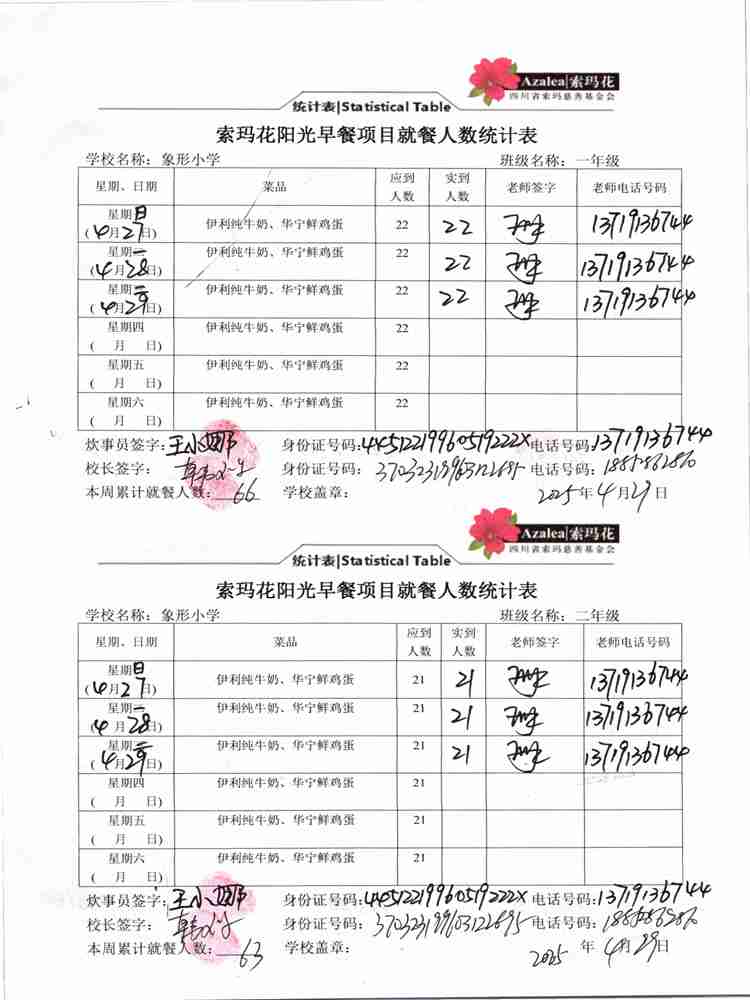 Azalea|索玛花
四川省索玛慈善基金会
统计表|Statistical Table
索玛花阳光早餐项目就餐人数统计表
学校名称：象形小学 班级名称：一年级
星期、日期 菜品 应到人数 实到人数 老师签字 老师电话号码
星期日 (4月27日) 伊利纯牛奶、华宁鲜鸡蛋 22 22 13719136744
星期一 (4月28日) 伊利纯牛奶、华宁鲜鸡蛋 22 22 13719136744
星期二 (4月29日) 伊利纯牛奶、华宁鲜鸡蛋 22 22 13719136744
星期四 ( 月 日) 伊利纯牛奶、华宁鲜鸡蛋 22
星期五 ( 月 日) 伊利纯牛奶、华宁鲜鸡蛋 22
星期六 ( 月 日) 伊利纯牛奶、华宁鲜鸡蛋 22
炊事员签字：王小娜 身份证号码：44512219960519222X 电话号码：13719136744
校长签字： 身份证号码： 电话号码：
本周累计就餐人数：66 学校盖章： 2025年4月29日
Azalea|索玛花
四川省索玛慈善基金会
统计表|Statistical Table
索玛花阳光早餐项目就餐人数统计表
学校名称：象形小学 班级名称：二年级
星期、日期 菜品 应到人数 实到人数 老师签字 老师电话号码
星期日 (4月27日) 伊利纯牛奶、华宁鲜鸡蛋 21 21 13719136744
星期一 (4月28日) 伊利纯牛奶、华宁鲜鸡蛋 21 21 13719136744
星期二 (4月29日) 伊利纯牛奶、华宁鲜鸡蛋 21 21 13719136744
星期四 ( 月 日) 伊利纯牛奶、华宁鲜鸡蛋 21
星期五 ( 月 日) 伊利纯牛奶、华宁鲜鸡蛋 21
星期六 ( 月 日) 伊利纯牛奶、华宁鲜鸡蛋 21
炊事员签字：王小娜 身份证号码：44512219960519222X 电话号码：13719136744
校长签字： 身份证号码： 电话号码：
本周累计就餐人数：63 学校盖章： 2025年4月29日